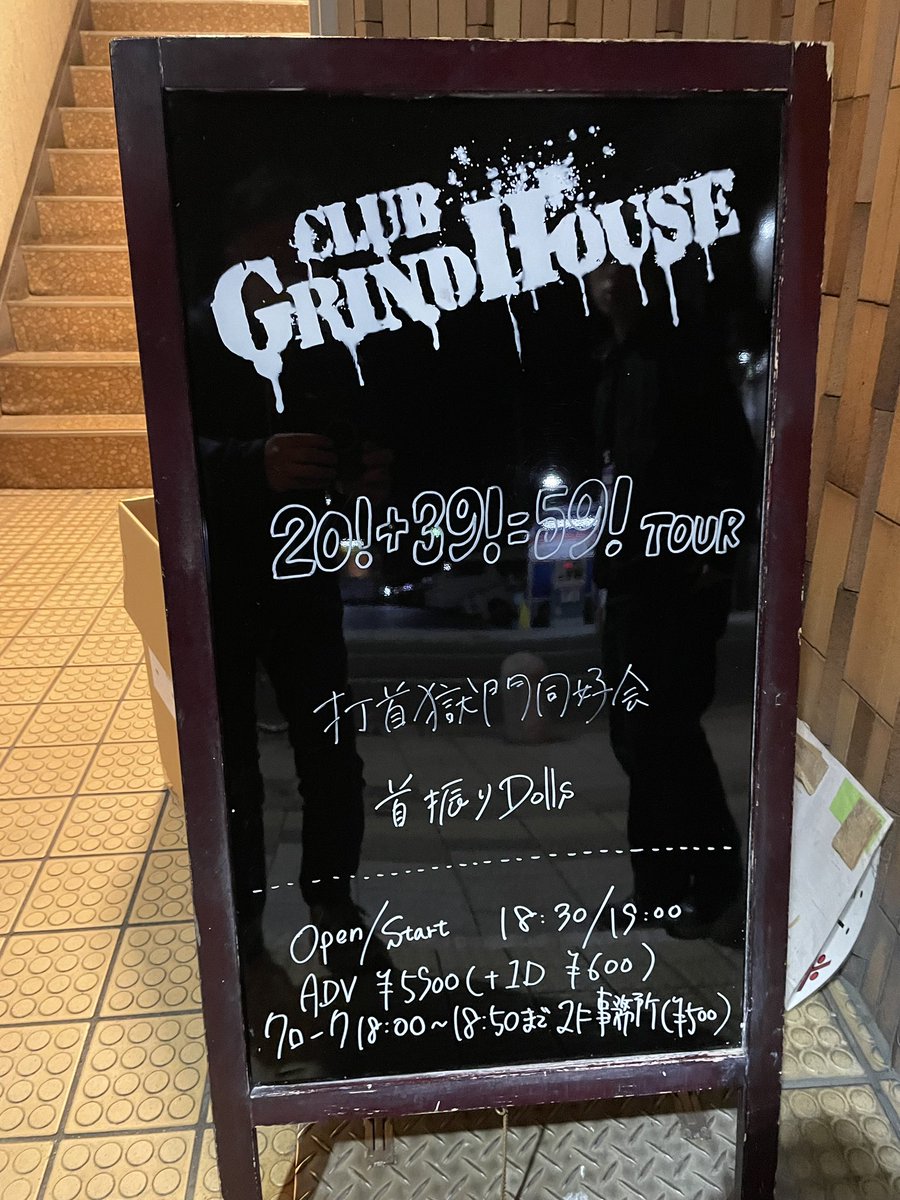 CLUB
GRINDHOUSE
20!+39!=59! TOUR
打首獄門同好会
首振りDolls
Open/Start 18:30/19:00
ADV ¥5900(+1D ¥600)
クローク18:00~18:50まで 2F事務所(¥500)